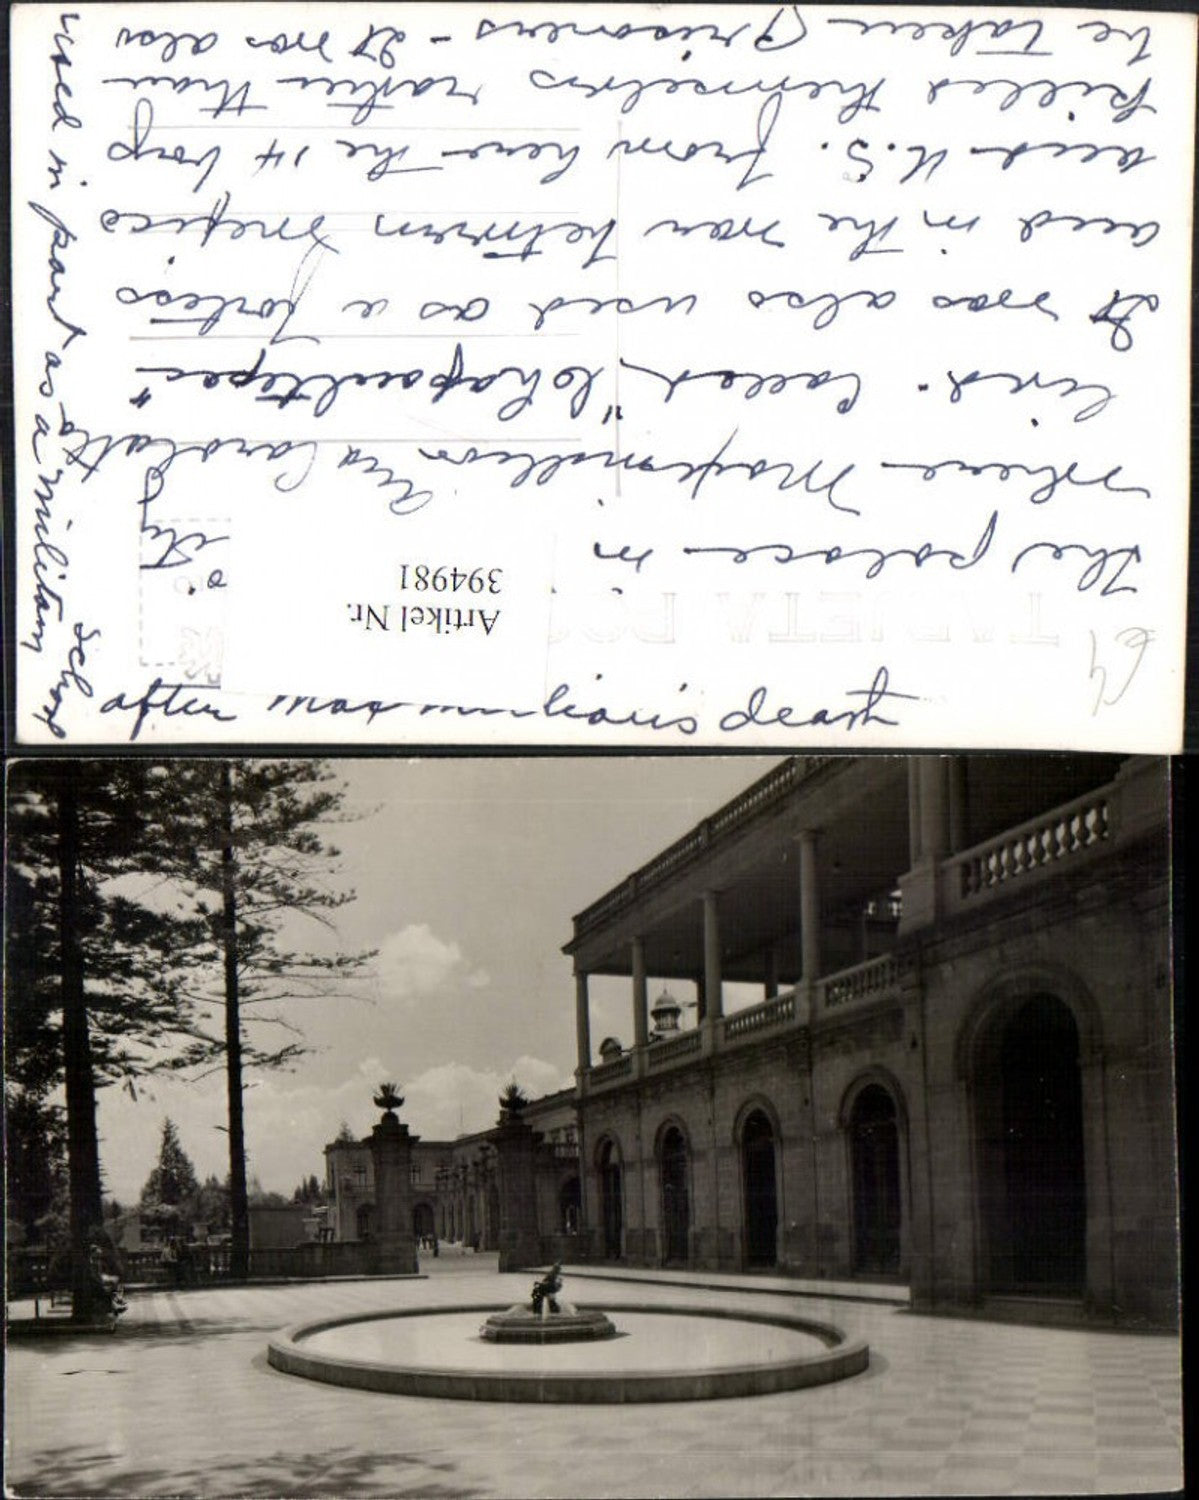 TARJETA PO
Artikel Nr.
394981
The palace in
where Maximillian and Carolatta
lived. Called, "Chapaultepec"
It was also used as a fortess
and in the war between Mexico
and U.S. from here the 14 boys
killed themselves rather than
be taken prisoners - It was also
used in part as a military
school
after
death
64